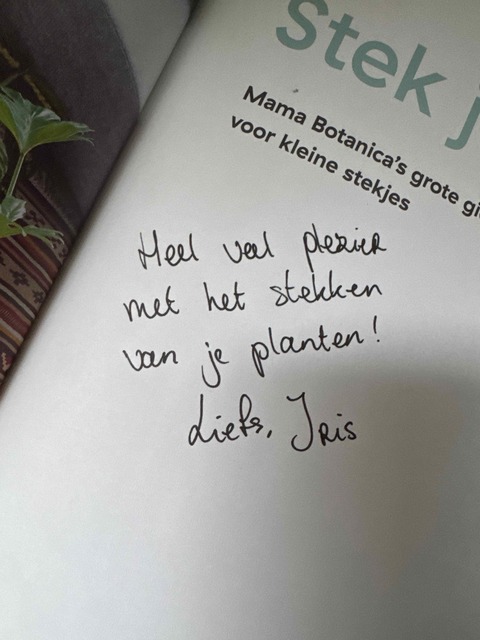 Stek j
Mama Botanica's grote gi
voor kleine stekjes
Heel veel plezier
met het stekken
van je planten!
Liefs, Iris